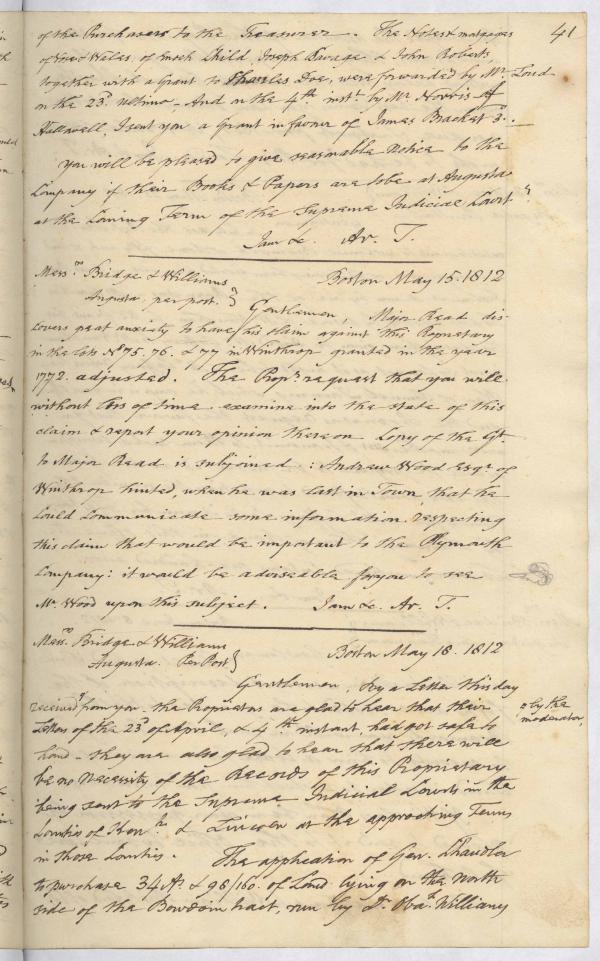 41
of the Purchasers to the Treasurer. The Notes & mortgages
of Wales, of Enoch Child, Joseph Savage & John Roberts,
together with a Grant to Charles Doe, were forwarded by Mr. Loud
on the 23d. ultimo - And on the 4th inst. by Mr. Norris of
Hallowell, I sent you a Grant in favour of James Bracket 3d. -
You will be pleased to give reasonable notice to the
Company if their Books & Papers are to be at Augusta
at the Coming Term of the Supreme Judicial Court
I am &c. Ar. T.
Messrs. Bridge & Williams
Augusta per post. } Boston May 15. 1812
Gentlemen, Major Read dis-
covers great anxiety to have his claim against this Proprietary
in the lots No 75. 76. & 77 in Winthrop granted in the year
1772. adjusted. The Proprs request that you will
without loss of time examine into the state of this
claim & report your opinion thereon Copy of the Gt
to Major Read is subjoined: Andrew Wood Esqr. of
Winthrop hinted, when he was last in Town, that he
could communicate some information respecting
this claim that would be important to the Plymouth
Company: it would be adviseable for you to see
Mr. Wood upon this subject. I am &c. Ar. T.
Messrs. Bridge & Williams
Augusta. Per Post } Boston May 18. 1812
Gentlemen, By a Letter this day
received from you the Proprietors are glad to hear that their
by the
moderator,
Letters of the 23d of April, & 4th instant, had got safe to
hand - they are also glad to hear that there will
be no necessity of the Records of this Proprietary
being sent to the Supreme Judicial Courts in the
Counties of Kenn. & Lincoln at the approching Terms
in those Counties. The application of Gen. Chandler
to purchase 34 As. & 98/160. of Land lying on the North
side of the Bowdoin tract, run by Dr. Oba. Williams